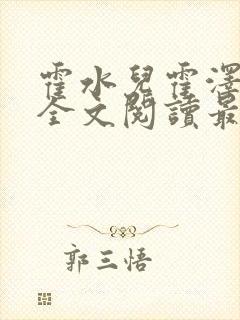 霍水兒霍澤
全文閱讀最
郭三悟